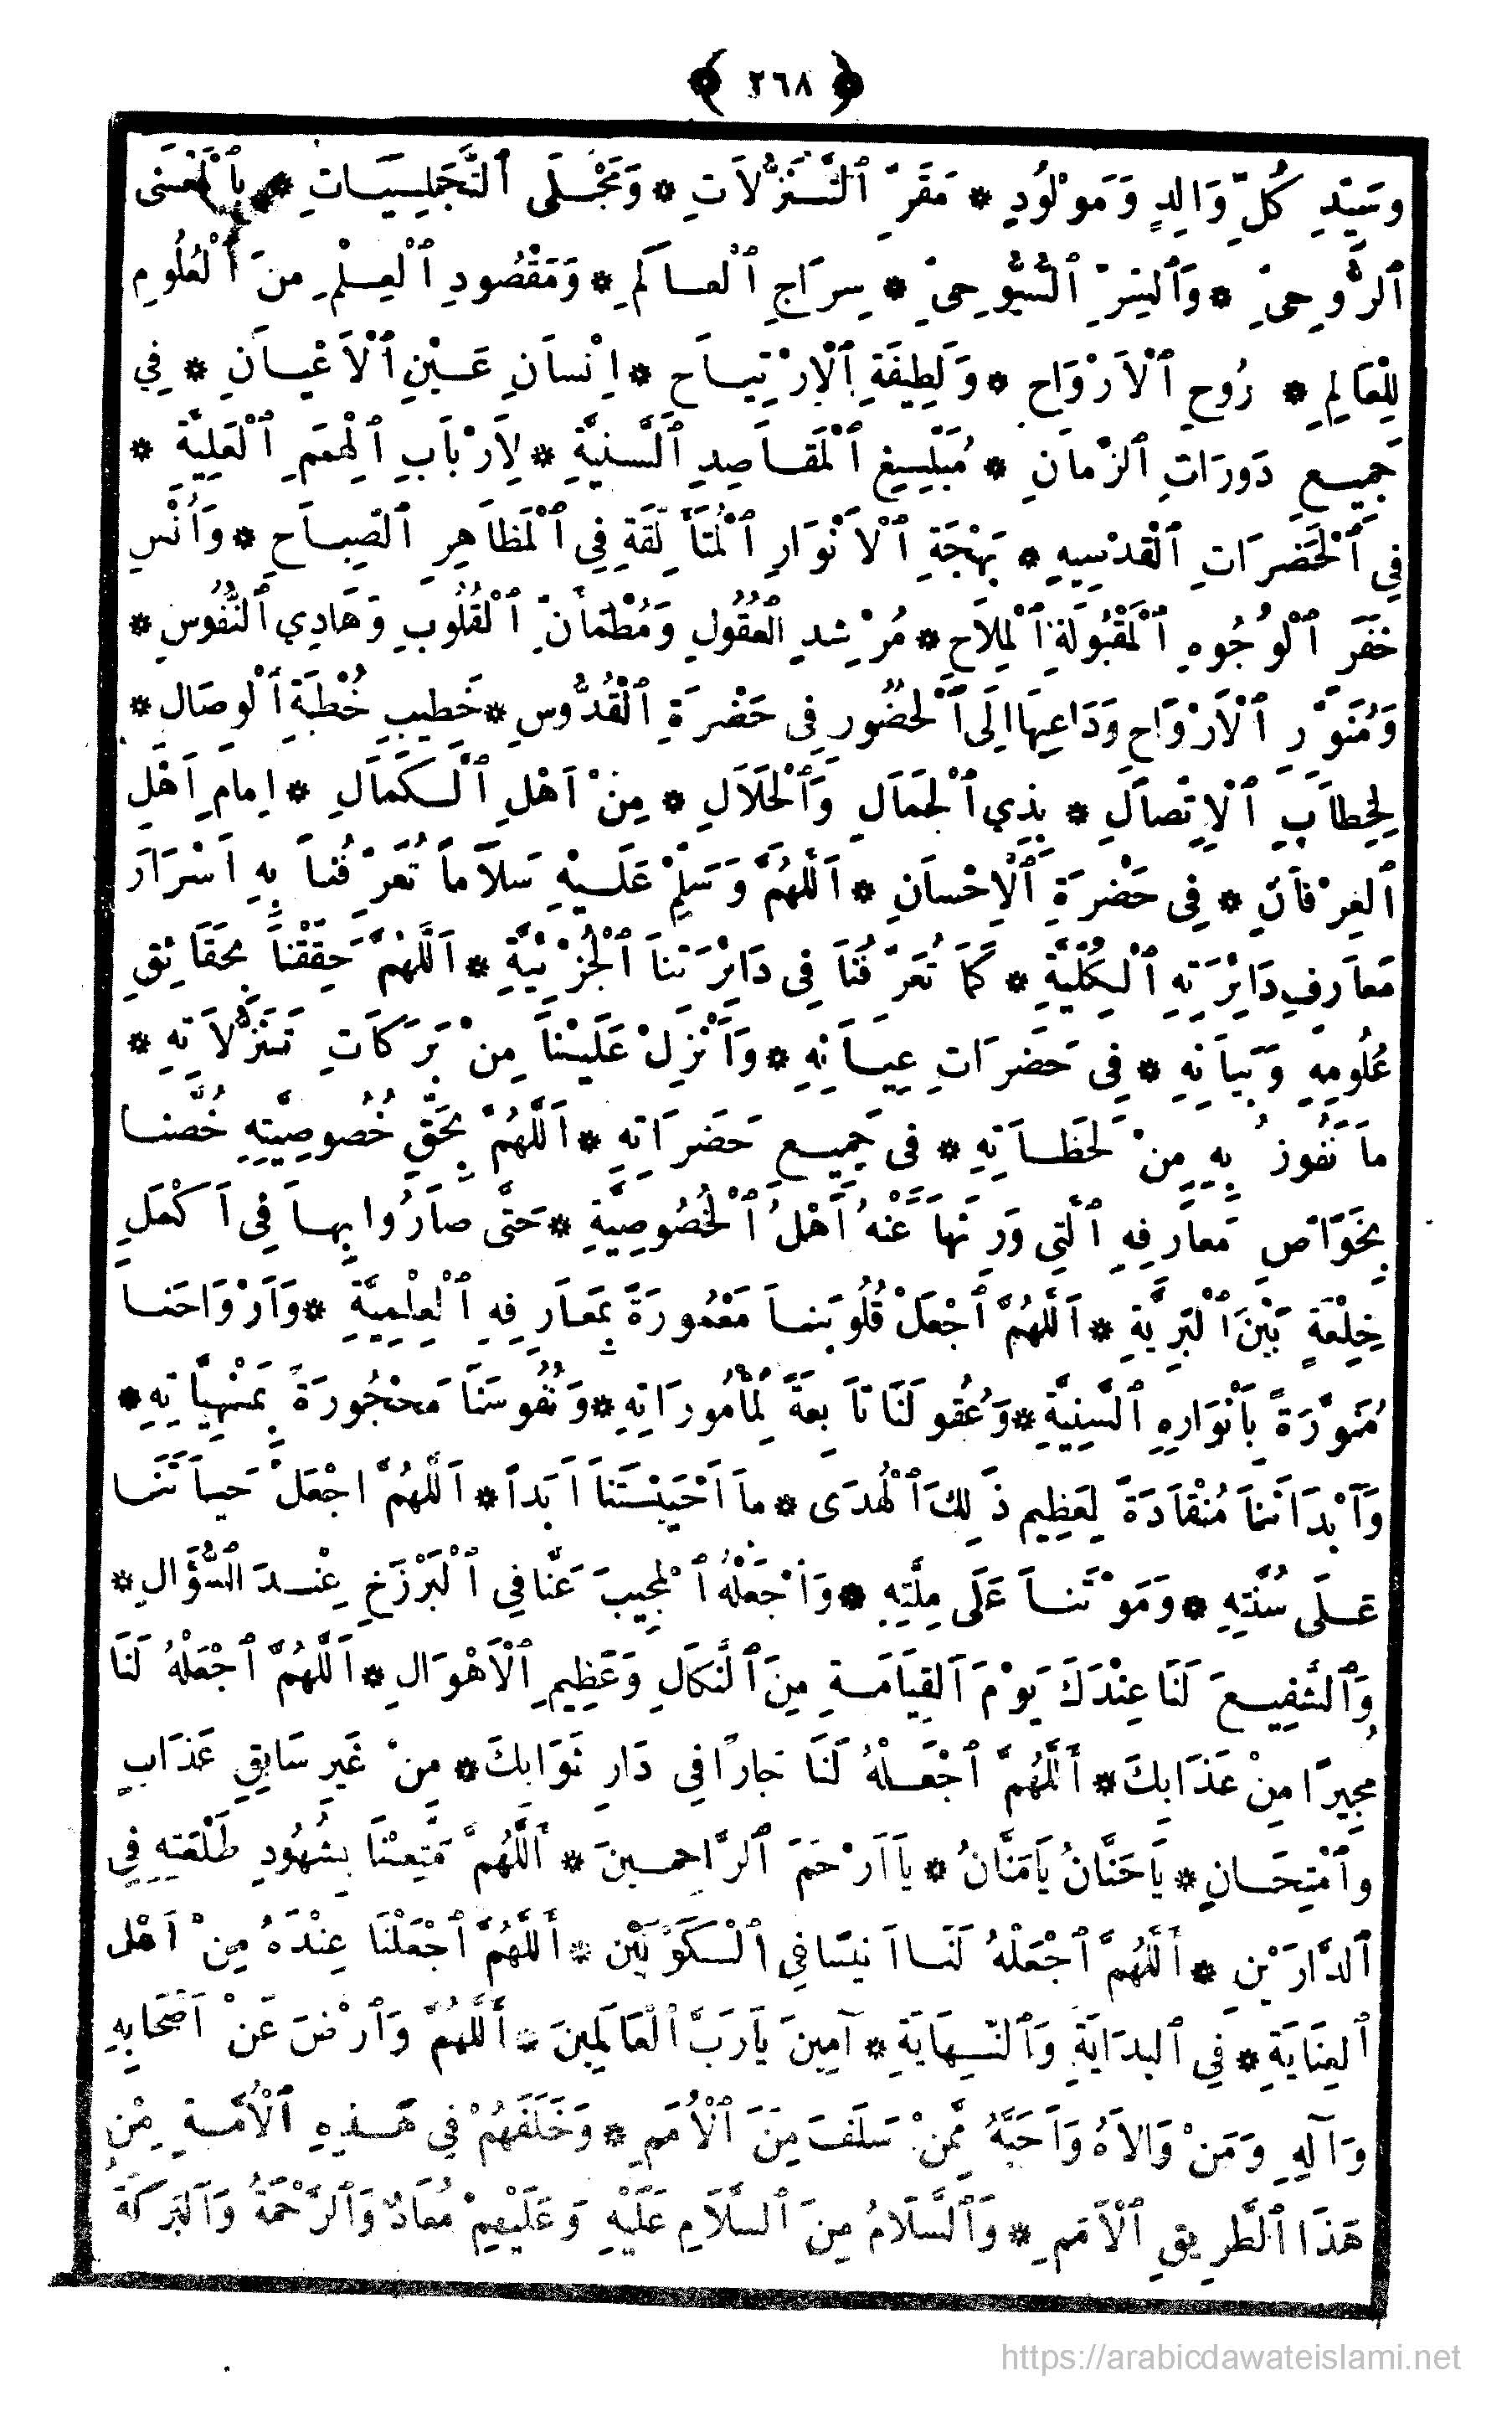 ﴿ ٢٦٨ ﴾
وسَيِّدِ كُلِّ وَالِدٍ وَمَوْلُودٍ * مَقَرِّ ٱلتَّنَزُّلاَتِ * وَمَجْلَى ٱلتَّجَلِّيَاتِ * بِٱلْمَعْنَى
ٱلرُّوحِىِّ * وَٱلسِّرِّ ٱلسُّبُّوحِىِّ * سِرَاجِ ٱلْعَالَمِ * وَمَقْصُودِ ٱلْعِلْمِ مِنَ ٱلْعُلُومِ
لِلْعَالِمِ * رُوحِ ٱلْأَرْوَاحِ * وَلَطِيفَةِ ٱلْاِرْتِيَاحِ * اِنْسَانِ عَيْنِ ٱلْأَعْيَانِ * فِي
جَمِيعِ دَوَرَاتِ ٱلزَّمَانِ * مُبَلِّغِ ٱلْمَقَاصِدِ ٱلسَّنِيَّةِ * لِأَرْبَابِ ٱلْهِمَمِ ٱلْعَلِيَّةِ *
فِي ٱلْحَضَرَاتِ ٱلْقُدْسِيِهِ * بَهْجَةِ ٱلْأَنْوَارِ ٱلْمُتَأَلِّقَةِ فِي ٱلْمَظَاهِرِ ٱلصِّبَاحِ * وَأُنْسِ
خَفَرِ ٱلْوُجُوهِ ٱلْمَقْبُولَةِ ٱلْمِلَاحِ * مُرْشِدِ ٱلْعُقُولِ وَمُطْمَأَنِّ ٱلْقُلُوبِ وَهَادِي ٱلنُّفُوسِ *
وَمُنَوِّرِ ٱلْأَرْوَاحِ وَدَاعِيهَا اِلَى ٱلْحُضُورِ فِى حَضْرَةِ ٱلْقُدُّوسِ * خَطِيبِ خُطْبَةِ ٱلْوِصَالِ *
لِخِطَابِ ٱلْاِتِّصَالِ * بِذِي ٱلْجَمَالِ وَٱلْجَلَالِ * مِنْ اَهْلِ ٱلْكَمَالِ * اِمَامِ اَهْلِ
ٱلْعِرْفَانِ * فِى حَضْرَةِ ٱلْاِحْسَانِ * اَللّٰهُمَّ وَسَلِّمْ عَلَيْهِ سَلَامًا تُعَرِّفُنَا بِهِ اَسْرَارَ
مَعَارِفِ دَائِرَتِهِ ٱلْكُلِّيَّةِ * كَمَا تُعَرِّفُنَا فِى دَائِرَتِنَا ٱلْجُزْئِيَّةِ * اَللّٰهُمَّ حَقِّقْنَا بِحَقَائِقِ
عُلُومِهِ وَبَيَانِهِ * فِى حَضَرَاتِ عِيَانِهِ * وَأَنْزِلْ عَلَيْنَا مِنْ بَرَكَاتِ تَنَزُّلَاتِهِ *
مَا نَفُوزُ بِهِ مِنْ لَحَظَاتِهِ * فى جَمِيعِ حَضَرَاتِهِ * اَللّٰهُمَّ بِحَقِّ خُصُوصِيَّتِهِ خُصَّنَا
بِخَوَاصِّ مَعَارِفِهِ ٱلَّتِي وَرِثَهَا عَنْهُ اَهْلُ ٱلْخُصُوصِيَّةِ * حَتَّى صَارُوا بِهَا فِى اَكْمَلِ
خِلْعَةٍ بَيْنَ ٱلْبَرِيَّةِ * اَللّٰهُمَّ ٱجْعَلْ قُلُوبَنَا مَعْمُورَةً بِمَعَارِفِهِ ٱلْعِلْمِيَّةِ * وَاَرْوَاحَنَا
مُنَوَّرَةً بِأَنْوَارِهِ ٱلسَّنِيَّةِ * وَعُقُولَنَا تَابِعَةً لِمَأْمُورَاتِهِ * وَنُفُوسَنَا مَحْجُورَةً بِمَنْهِيَّاتِهِ *
وَأَبْدَانَنَا مُنْقَادَةً لِعَظِيمِ ذَلِكَ ٱلْهُدَى * مَا اَحْيَيْتَنَا اَبَدًا * اَللّٰهُمَّ اجْعَلْ حَيَاتَنَا
عَلَى سُنَّتِهِ * وَمَوْتَنَا عَلَى مِلَّتِهِ * وَٱجْعَلْهُ ٱلْمُجِيبَ عَنَّا فِي ٱلْبَرْزَخِ عِنْدَ ٱلسُّؤَالِ *
وَٱلشَّفِيعَ لَنَا عِنْدَكَ يَوْمَ ٱلْقِيَامَةِ مِنَ ٱلنَّكَالِ وَعَظِيمِ ٱلْأَهْوَالِ * اَللّٰهُمَّ ٱجْعَلْهُ لَنَا
مُجِيرًا مِنْ عَذَابِكَ * أَللّٰهُمَّ ٱجْعَلْهُ لَنَا جَارًا فِي دَارِ ثَوَابِكَ * مِنْ غَيْرِ سَابِقِ عَذَابٍ
وٱمْتِحَانٍ * يَا حَنَّانُ يَا مَنَّانُ * يَا اَرْحَمَ ٱلرَّاحِمِينَ * أَللّٰهُمَّ مَتِّعْنَا بِشُهُودِ طَلْعَتِهِ فِي
ٱلدَّارَيْنِ * أَللّٰهُمَّ ٱجْعَلْهُ لَنَا اَنِيسًا فِي ٱلْكَوْنَيْنِ * أَللّٰهُمَّ ٱجْعَلْنَا عِنْدَهُ مِنْ اَهْلِ
ٱلْعِنَايَةِ * فِي ٱلْبِدَايَةِ وَٱلنِّهَايَةِ * آمِينَ يَارَبَّ ٱلْعَالَمِينَ * أَللّٰهُمَّ وَٱرْضَ عَنْ اَصْحَابِهِ
وَآلِهِ وَمَنْ وَالَاهُ وَاَحَبَّهُ مِمَّنْ سَلَفَ مِنَ ٱلْأُمَمِ * وَخَلَفَهُمْ فِي هَذِهِ ٱلْأُمَّةِ مِنْ
هَذَا ٱلطَّرِيقِ ٱلْأَمَمِ * وَٱلسَّلَامُ مِنَ ٱلسَّلَامِ عَلَيْهِ وَعَلَيْهِمْ مُعَادٌ وَٱلرَّحْمَةُ وَٱلْبَرَكَةُ
https://arabicdawateislami.net